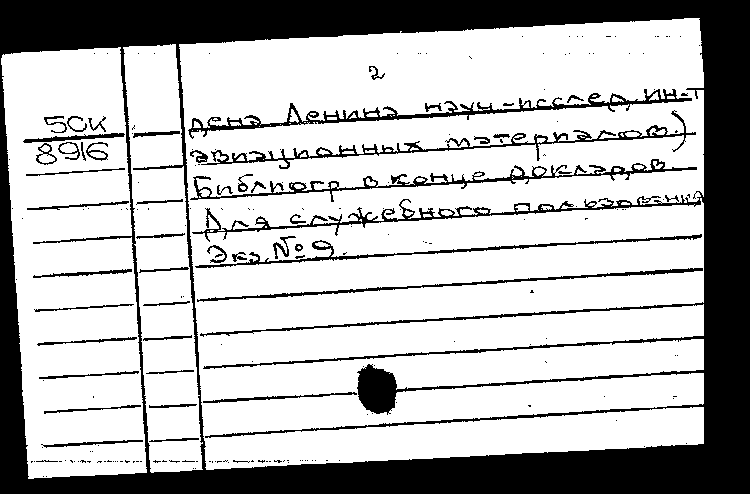 2
50к
8916
дена Ленина науч-исслед ин-т
авиационных материалов.)
Библиогр в конце докладов.
Для служебного пользования
Экз. № 9.